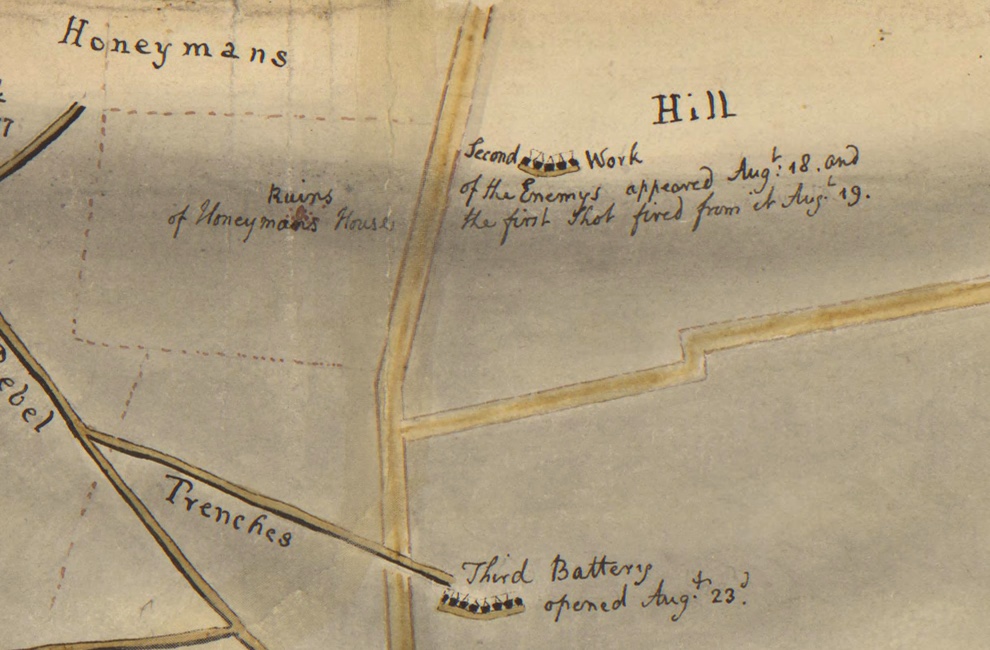 Honeymans
Hill
7
Second Work
of the Enemys appeared Augt: 18. and
the first Shot fired from it Augt 19.
Ruins
of Honeymans House
Rebel
Trenches
Third Battery
opened Augt 23d.